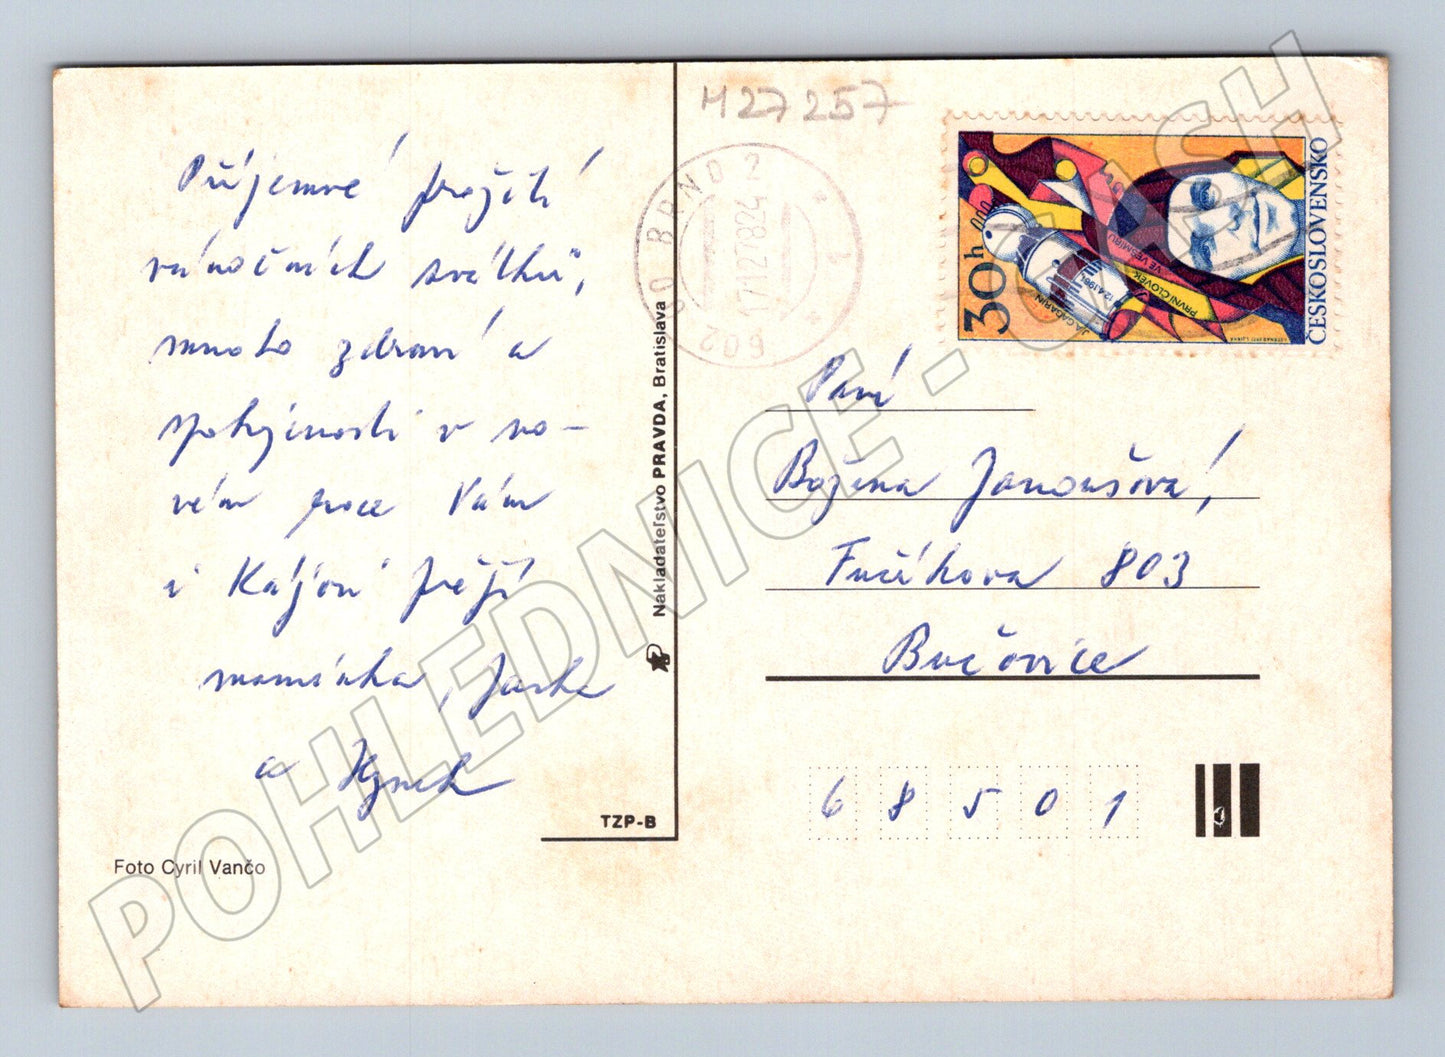 M27257
Příjemné prožití
vánočních svátků,
mnoho zdraví a
spokojenosti v no-
vém roce Vám
i Kájovi přejí
maminka, Jarka
a Hynek
Foto Cyril Vančo
TZP-B
Nakladateľstvo PRAVDA, Bratislava
602 00 BRNO 2
17.12.78 24
1
209
ČESKOSLOVENSKO
30h
J.A.GAGARIN
12.4.1961
PRVNÍ ČLOVĚK
VE VESMÍRU
Paní
Božena Janoušová,
Fučíkova 803
Bučovice
68501
POHLEDNICE - CASH